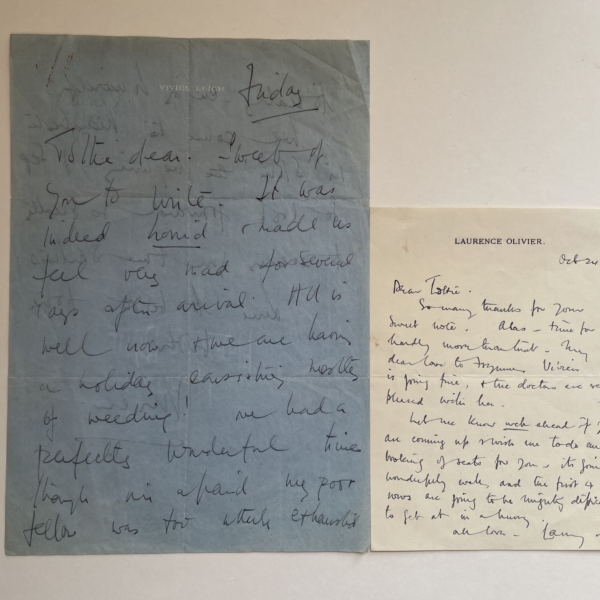 VIVIEN LEIGH
Friday
Tottie dear. Sweet of
you to write. It was
indeed horrid & made us
feel very mad for several
days after arrival. All is
well now & we are having
a holiday consisting mostly
of weeding! We had a
perfectly wonderful time
though I'm afraid my poor
fellow was too utterly exhausted
LAURENCE OLIVIER.
Oct 24
Dear Tottie.
So many thanks for your
sweet note. Alas - time for
hardly more than that. My
dear love to Vivien
is going fine, & the doctors are
pleased with her.
Let me know well ahead if
are coming up & wish me to do an
booking of seats for you - its going
wonderfully well, and the first 4
rows are going to be mighty difficult
to get at in a hurry.
all love - Larry